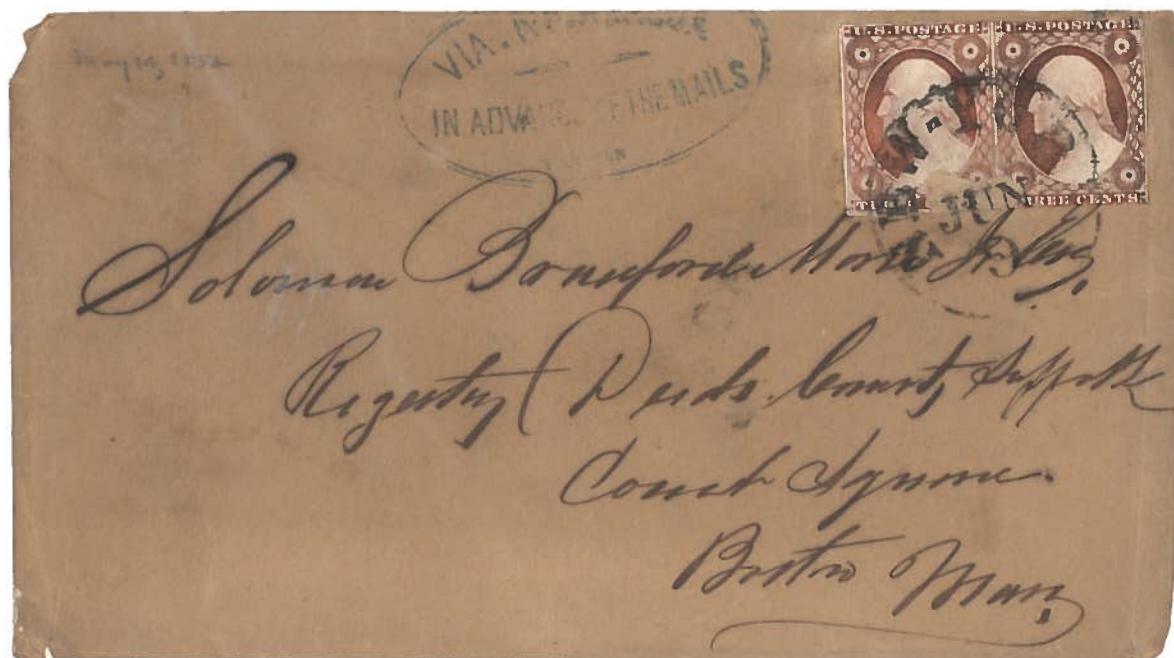 May 15, 1852
VIA. NICARAGUA
IN ADVANCE OF THE MAILS
U.S.POSTAGE U.S.POSTAGE
THREE CENTS
NEW YORK
JUN
Solomon Bransford Morse Jr Esq,
Registry Deeds. County Suffolk
Court Square.
Boston Mass,